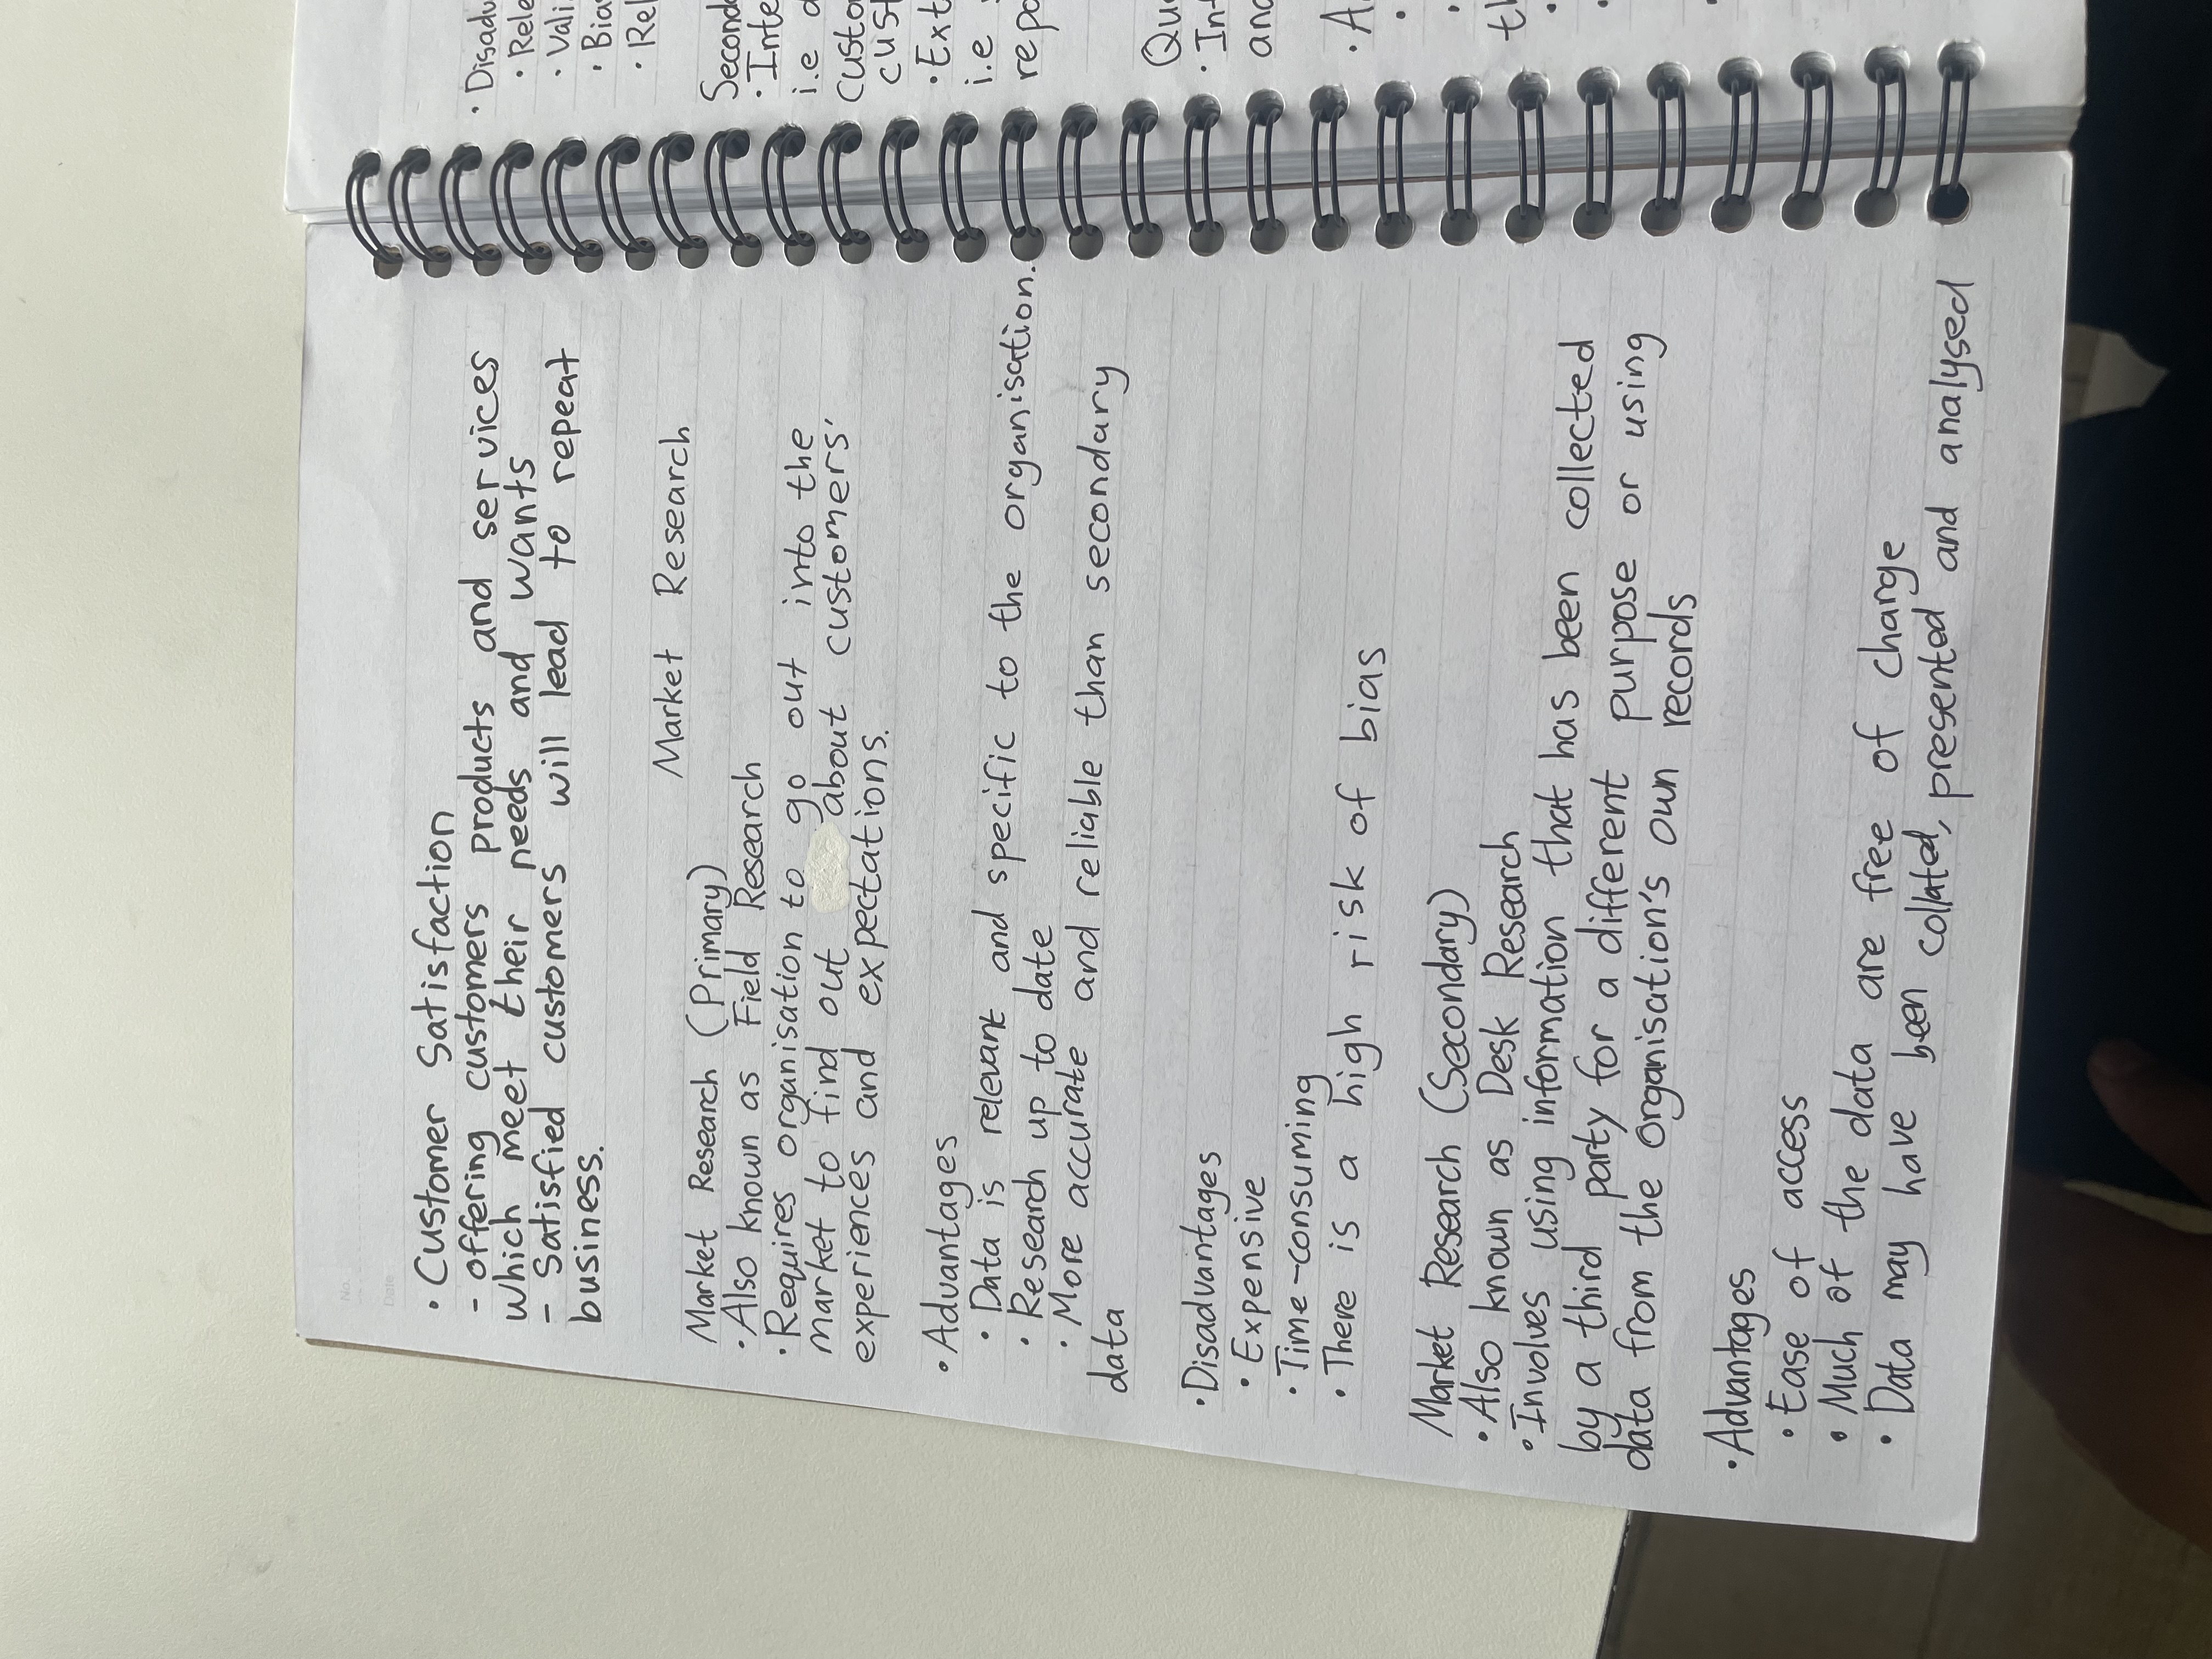 No.
Date
• Customer Satisfaction
- offering customers products and services
which meet their needs and wants
- Satisfied customers will lead to repeat
business.
Market Research
Market Research (Primary)
• Also known as Field Research
• Requires organisation to go out into the
market to find out about customers'
experiences and expectations.
• Advantages
• Data is relevant and specific to the organisation.
• Research up to date
• More accurate and reliable than secondary
data
• Disadvantages
• Expensive
• Time-consuming
• There is a high risk of bias
Market Research (Secondary)
• Also known as Desk Research
• Involves using information that has been collected
by a third party for a different purpose or using
data from the Organisation's own records
• Advantages
• Ease of access
• Much of the data are free of change
• Data may have been collated, presented and analysed
• Disadv
• Rele
• Vali
• Bia
• Rel
Second
• Inte
i.e
custo
cust
• Ext
i.e
repo
Qu
• Int
and
• A
th